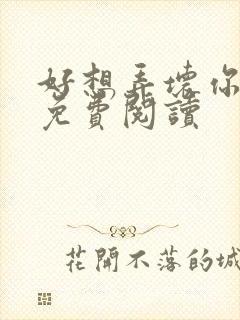 好想弄壞你
免費閱讀
花開不落的城